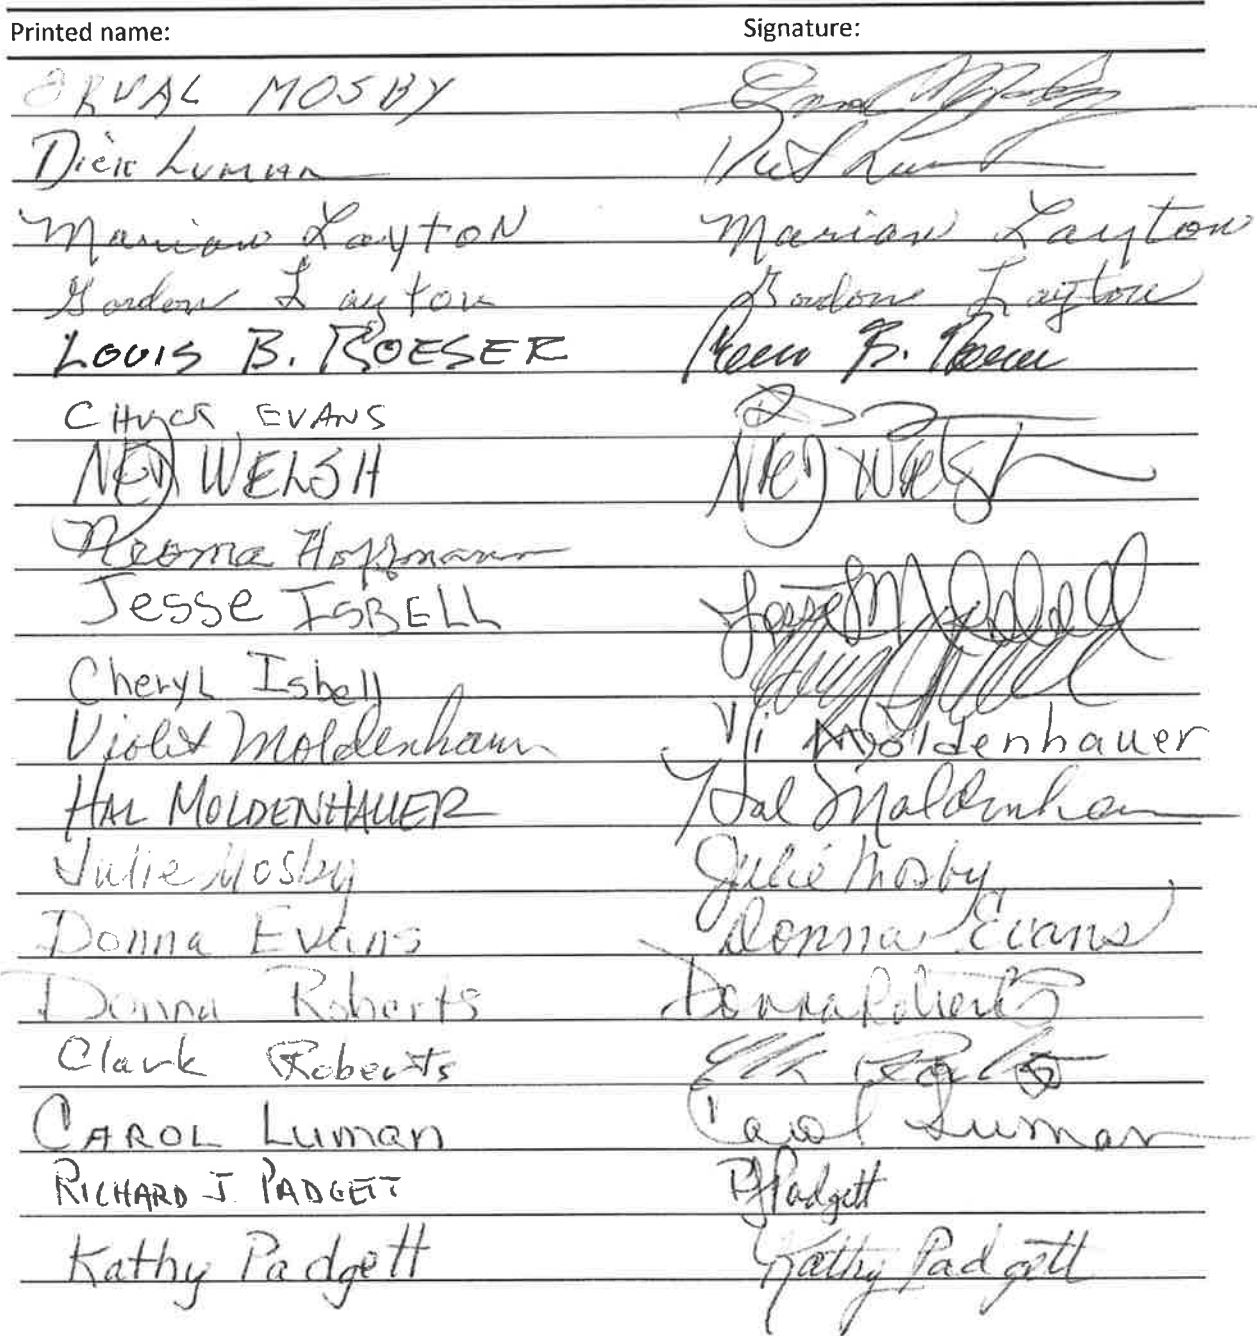 Printed name: Signature:
ORVAL MOSBY
Dick Luman
Marian Layton Marian Layton
Gordon Layton Gordon Layton
LOUIS B. ROESER B.
CHUCK EVANS
NED WELSH NED Welsh
Neoma Hoffmann
Jesse ISBELL Jesse M Isbell
Cheryl Isbell
Violet Moldenhauer Vi Moldenhauer
HAL MOLDENHAUER Hal Moldenhauer
Julie Mosby Julie Mosby
Donna Evans Donna Evans
Donna Roberts Donna Roberts
Clark Roberts
CAROL Luman Carol Luman
RICHARD J. PADGETT RJ Padgett
Kathy Padgett Kathy Padgett